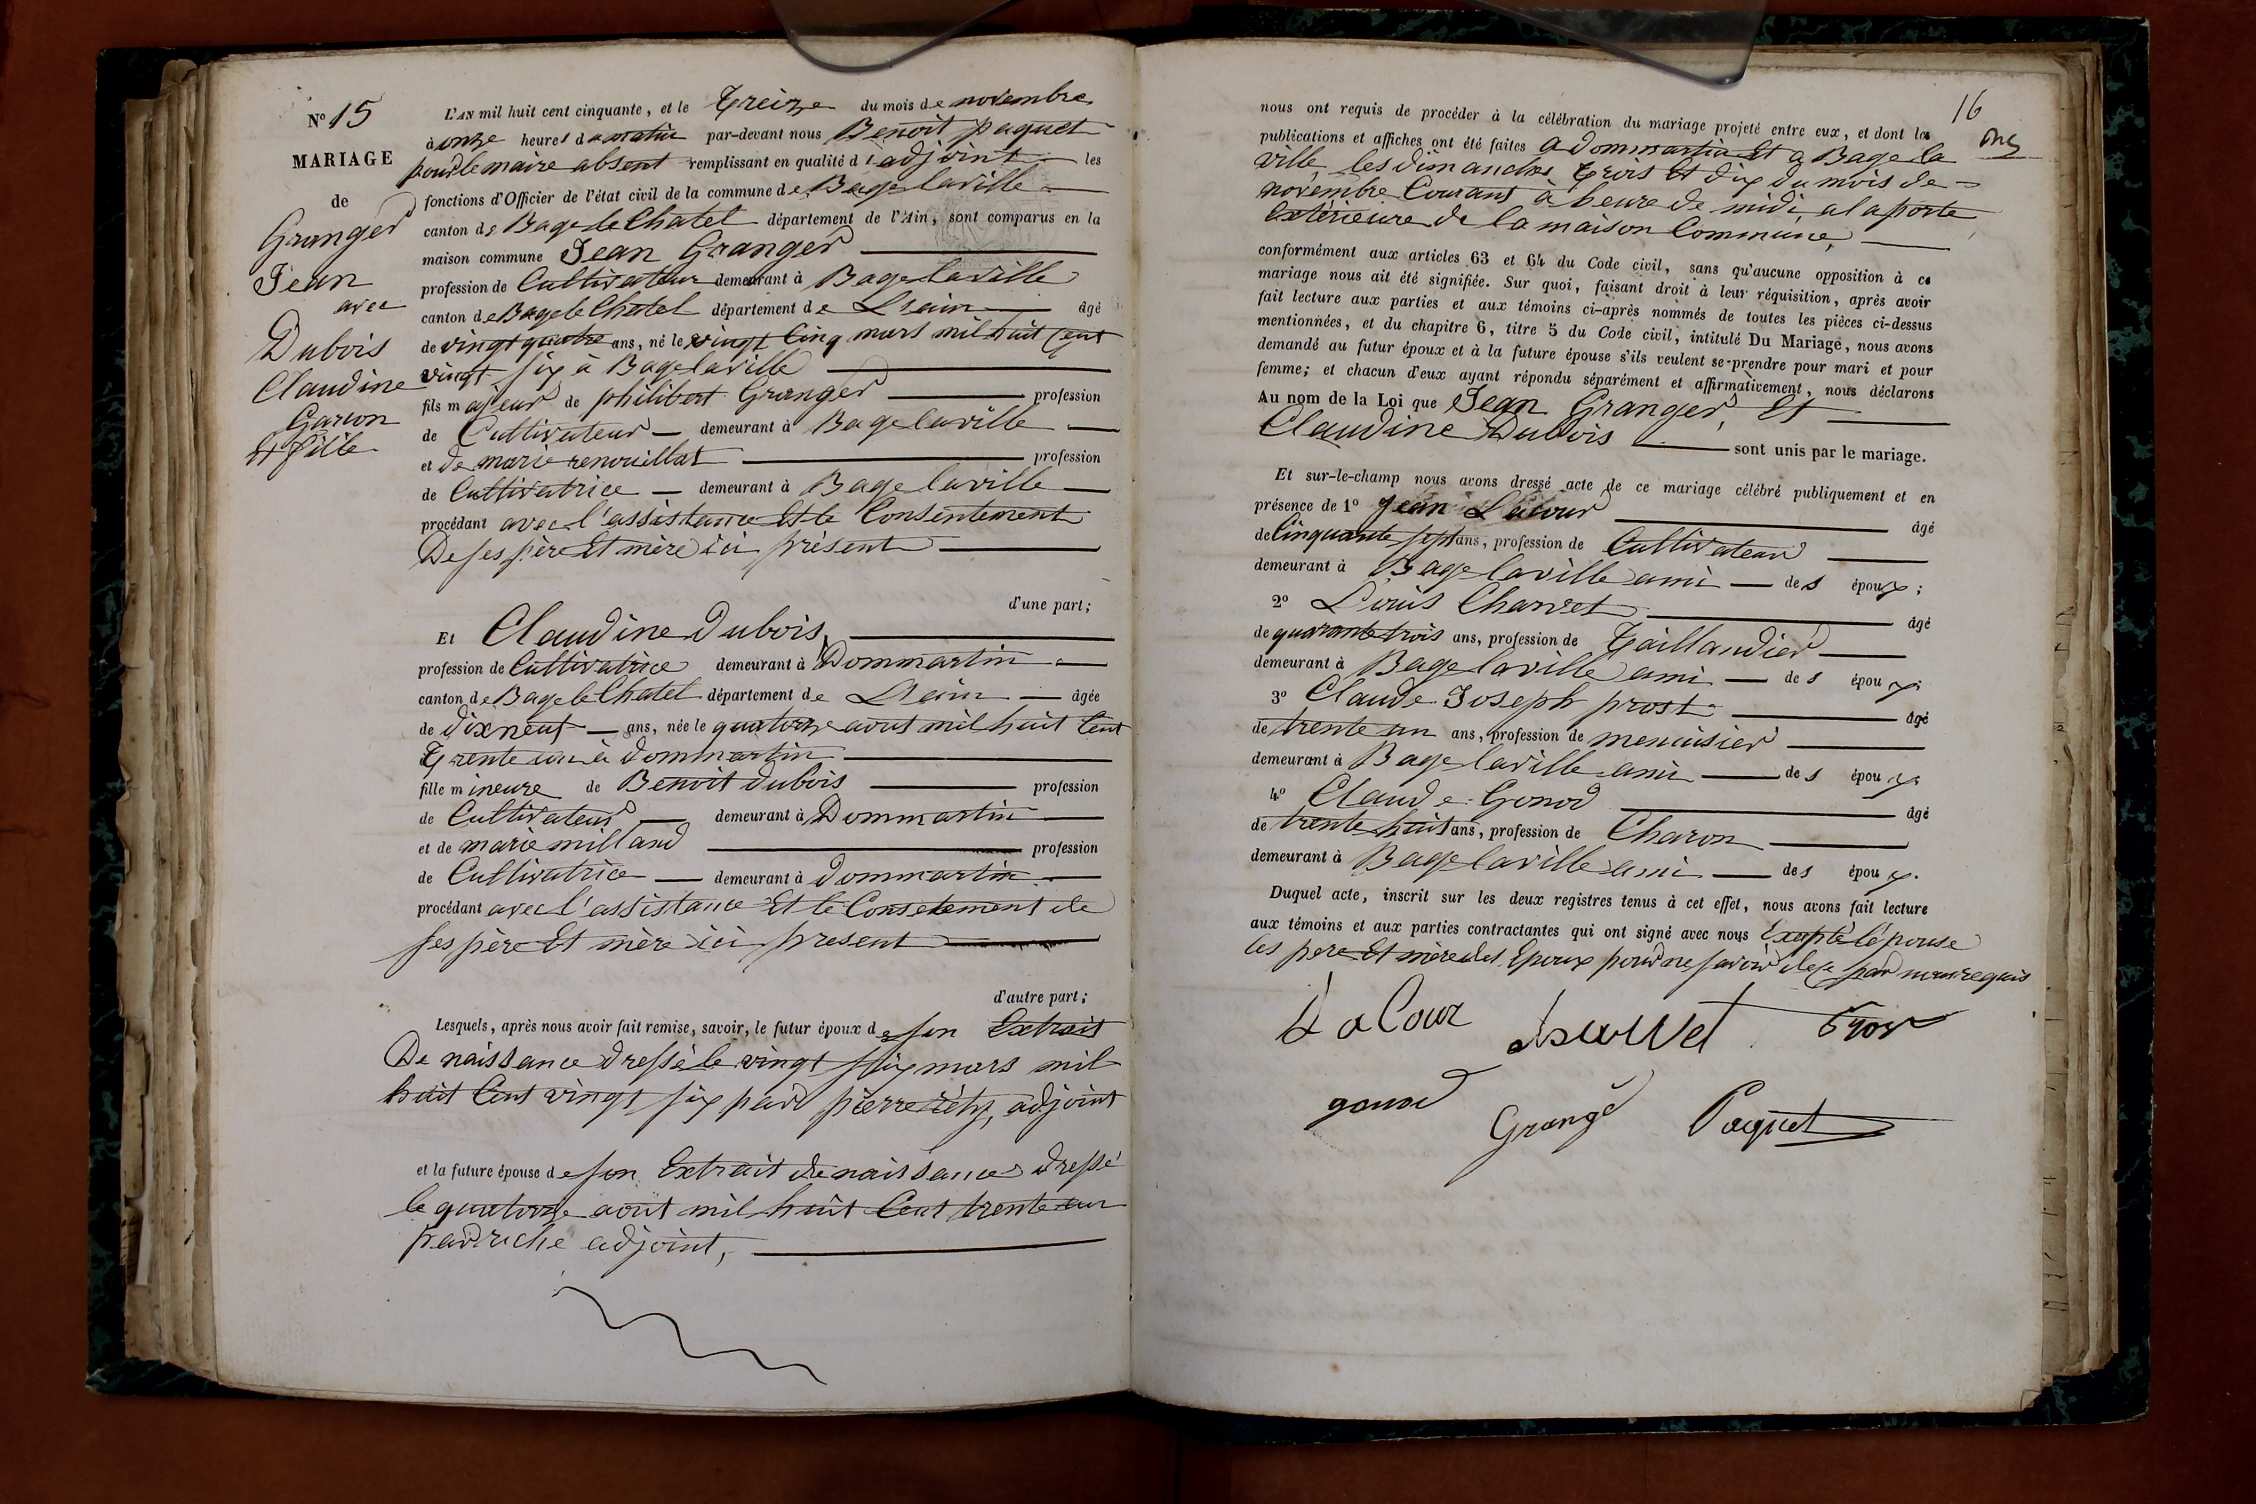 N° 15
MARIAGE
de
Granger
Jean
avec
Dubois
Claudine
Garcon
et fille
L'AN mil huit cent cinquante, et le Treize du mois de novembre
à onze heures du matin par-devant nous Benoit paquet
pour le maire absent remplissant en qualité d'adjoint les
fonctions d'Officier de l'état civil de la commune de Bage la ville
canton de Bage le Chatel département de l'Ain, sont comparus en la
maison commune Jean Granger
profession de Cultivateur demeurant à Bage la ville
canton de Bage le Chatel département de L'ain âgé
de vingt quatre ans, né le vingt Cinq mars mil huit Cent
vingt six à Bage la ville
fils majeur de philibert Granger profession
de Cultivateur demeurant à Bage la ville
et de marie renouillat profession
de Cultivatrice demeurant à Bage la ville
procédant avec l'assistance Et le Consentement
De ses père Et mère ici présent
d'une part;
Et Claudine Dubois
profession de Cultivatrice demeurant à Dommartin
canton de Bage le Chatel département de L'ain âgée
de dix neuf ans, née le quatorze aout mil huit Cent
Trente un à dommartin
fille mineure de Benoit dubois profession
de Cultivateur demeurant à Dommartin
et de marie milland profession
de Cultivatrice demeurant à dommartin
procédant avec l'assistance Et le Consetement de
ses père Et mère ici present
d'autre part;
Lesquels, après nous avoir fait remise, savoir, le futur époux de son Extrait
De naissance dressé le vingt six mars mil
huit Cent vingt six par pierre adjoint
et la future épouse de son Extrait de naissance dressé
le quatorze aout mil huit Cent trente un
par riche adjoint,
16
nous ont requis de procéder à la célébration du mariage projeté entre eux, et dont les
publications et affiches ont été faites a Dommartin Et a Bage la
ville les dimanches Trois Et dix du mois de
novembre Courant à heure de midi, a la porte
Extérieure de la maison Commune,
conformément aux articles 63 et 64 du Code civil, sans qu'aucune opposition à ce
mariage nous ait été signifiée. Sur quoi, faisant droit à leur réquisition, après avoir
fait lecture aux parties et aux témoins ci-après nommés de toutes les pièces ci-dessus
mentionnées, et du chapitre 6, titre 5 du Code civil, intitulé Du Mariage, nous avons
demandé au futur époux et à la future épouse s'ils veulent se prendre pour mari et pour
femme; et chacun d'eux ayant répondu séparément et affirmativement, nous déclarons
Au nom de la Loi que Jean Granger, Et
Claudine Dubois sont unis par le mariage.
Et sur-le-champ nous avons dressé acte de ce mariage célébré publiquement et en
présence de 1° Jean Lacour âgé
de Cinquante sept ans, profession de Cultivateur
demeurant à Bage la ville ami des époux;
2° Louis Charvet âgé
de quarante trois ans, profession de Taillandier
demeurant à Bage la ville ami des époux;
3° Claude Joseph prost âgé
de trente un ans, profession de menuisier
demeurant à Bage la ville ami des époux;
4° Claude Gonod âgé
de trente huit ans, profession de Charon
demeurant à Bage la ville ami des époux.
Duquel acte, inscrit sur les deux registres tenus à cet effet, nous avons fait lecture
aux témoins et aux parties contractantes qui ont signé avec nous Excepté l'épouse
les pere Et mère des Epoux pour ne savoir de ce par nous requis
LaCour Charvet Prost
gonod Grangé Paquet